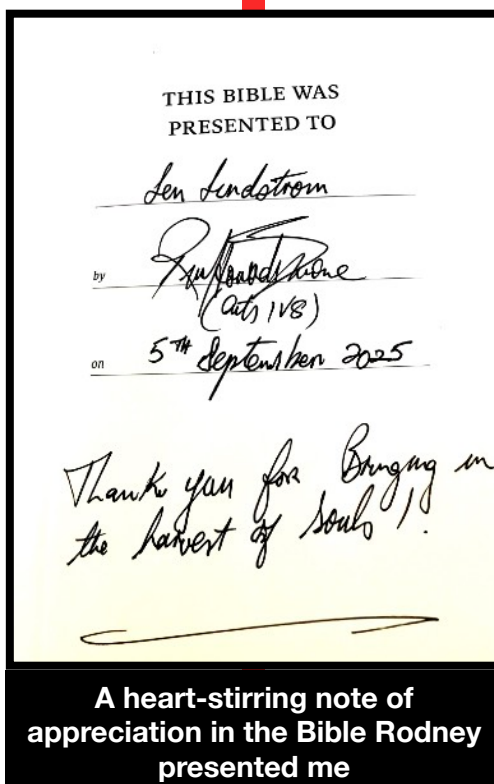 THIS BIBLE WAS
PRESENTED TO
Len Lindstrom
by
(Acts 1V8)
on 5TH September 2025
Thank you for Bringing in
the harvest of souls !!
A heart-stirring note of
appreciation in the Bible Rodney
presented me